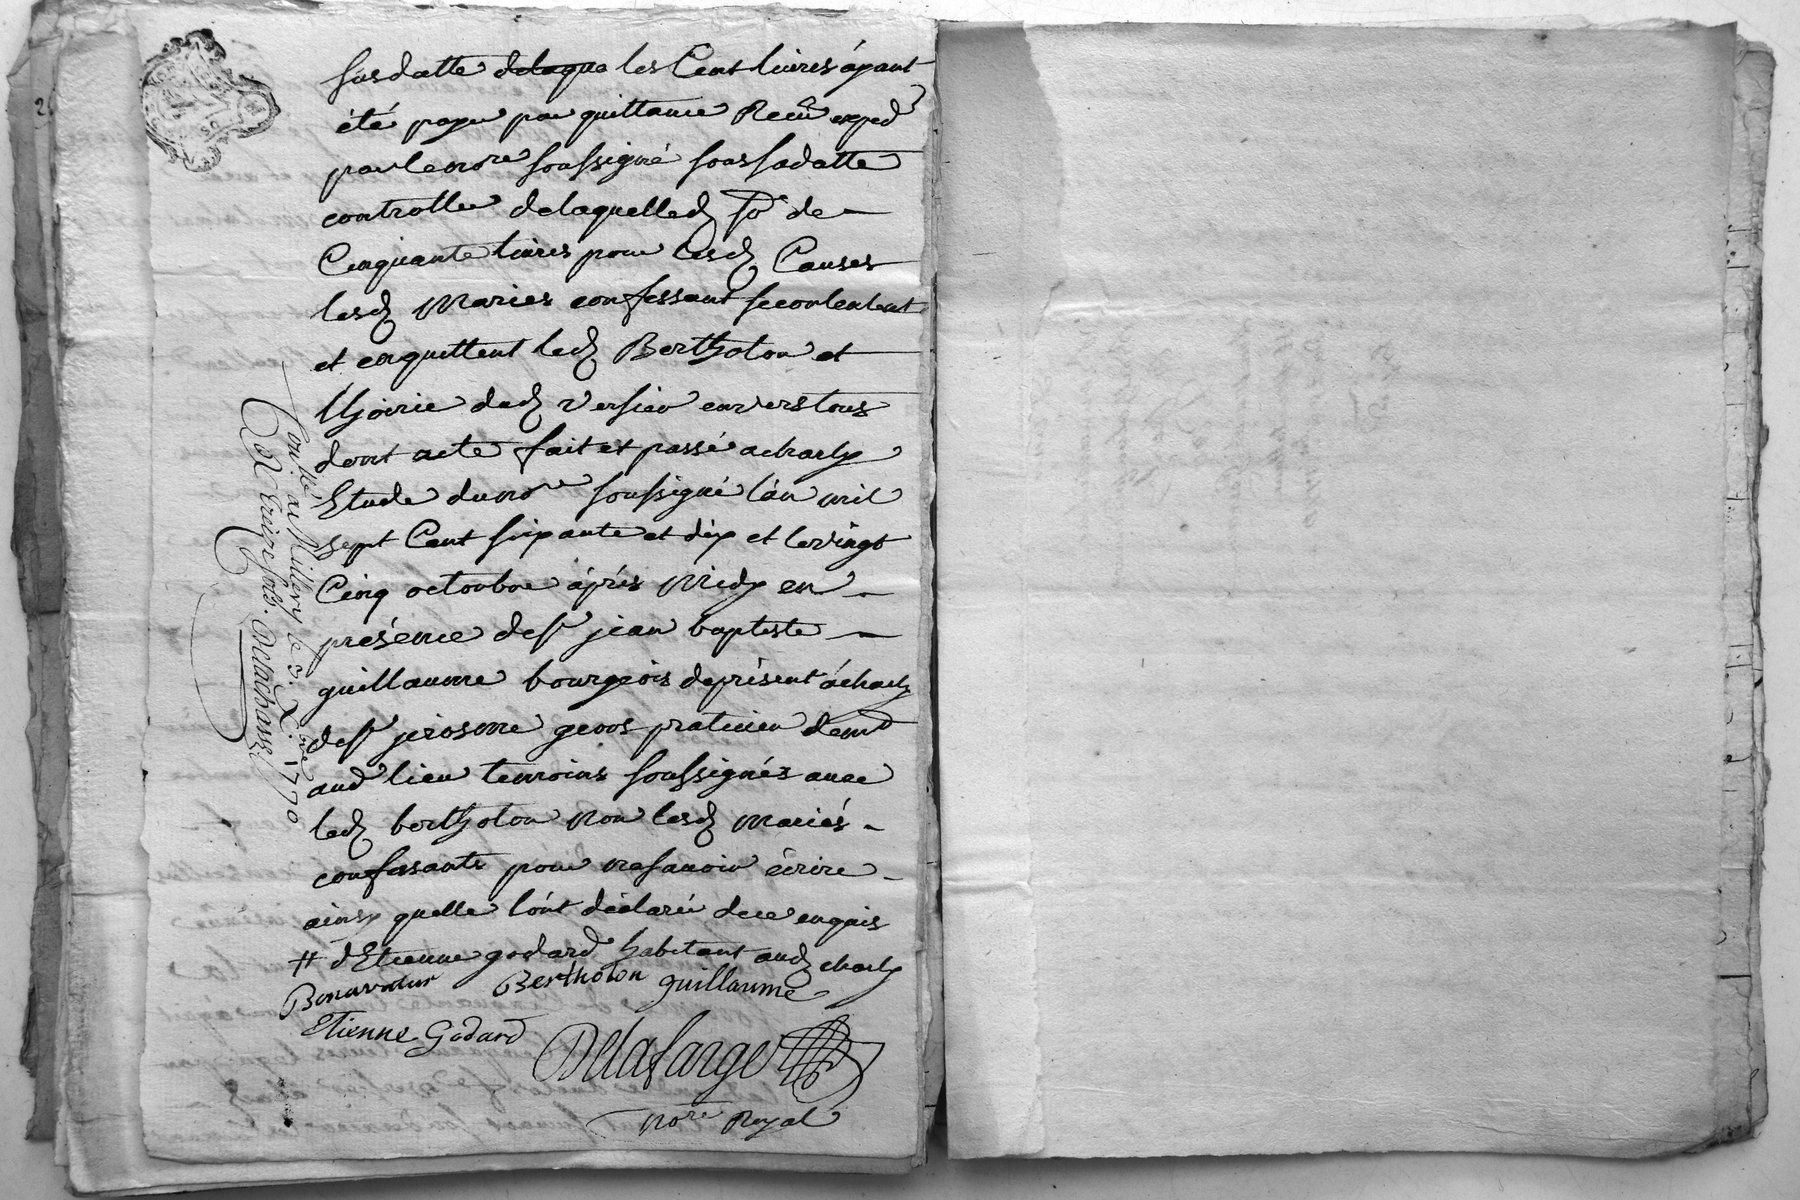 sus datte delaque les Cent livres áyant
été paye par quittance Recu exped
par le nore soussigné sous sa datte
controlle de laquelled so de
Cinquante livres pour lesd Causes
lesd Mariés confessant se contentent
et enquittent led Bertholon et
lhoirie dud versier envers tous
dont acte fait et passé a charly
Etude du nore soussigné lán mil
sept Cent soixante et dix et le vingt
Cinq octoubre áprés Midy en
présence de sr jean baptiste
guillaume bourgeois de présent á charly
de sr jerosme geoos praticien dem
aud lieu temoins soussignés avec
led bertholon Non lesd mariés
confessants pour ne savoir écrire
ainsy quelle lónt déclaré de ce enquis
# dEtienne godard habitant aud charly
Bonavantur Bertholon guillaume
Etienne Godard
Delafarge
nore Royal
Contlé a Millery le 3. Xbre 1770
Rx treize sols. Delachassi